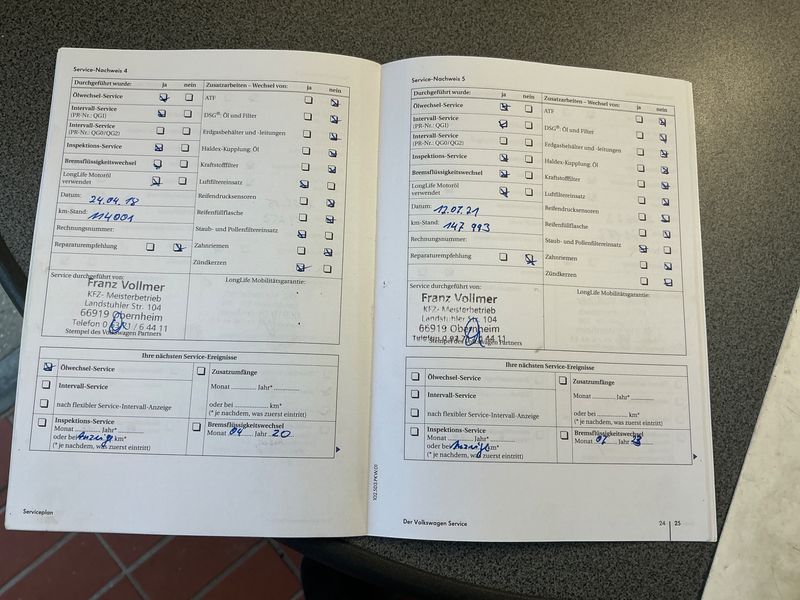 Service-Nachweis 4
Durchgeführt wurde: ja nein
Ölwechsel-Service
Intervall-Service
(PR-Nr.: QG1)
Intervall-Service
(PR-Nr.: QG0/QG2)
Inspektions-Service
Bremsflüssigkeitswechsel
LongLife Motoröl
verwendet
Datum: 24.04.18
km-Stand: 114001
Rechnungsnummer:
Reparaturempfehlung
Zusatzarbeiten – Wechsel von: ja nein
ATF
DSG®: Öl und Filter
Erdgasbehälter und -leitungen
Haldex-Kupplung: Öl
Kraftstofffilter
Luftfiltereinsatz
Reifendrucksensoren
Reifenfüllflasche
Staub- und Pollenfiltereinsatz
Zahnriemen
Zündkerzen
Service durchgeführt von:
Franz Vollmer
KFZ- Meisterbetrieb
Landstuhler Str. 104
66919 Obernheim
Stempel des Volkswagen Partners
LongLife Mobilitätsgarantie:
Ihre nächsten Service-Ereignisse
Ölwechsel-Service
Intervall-Service
nach flexibler Service-Intervall-Anzeige
Zusatzumfänge
Monat Jahr*
oder bei km*
(* je nachdem, was zuerst eintritt)
Inspektions-Service
Monat Jahr*
oder bei Anzeige km*
(* je nachdem, was zuerst eintritt)
Bremsflüssigkeitswechsel
Monat 04 Jahr 20
Serviceplan
102.5D3.PKW.01
Service-Nachweis 5
Durchgeführt wurde: ja nein
Ölwechsel-Service
Intervall-Service
(PR-Nr.: QG1)
Intervall-Service
(PR-Nr.: QG0/QG2)
Inspektions-Service
Bremsflüssigkeitswechsel
LongLife Motoröl
verwendet
Datum: 12.07.21
km-Stand: 147 993
Rechnungsnummer:
Reparaturempfehlung
Zusatzarbeiten – Wechsel von: ja nein
ATF
DSG®: Öl und Filter
Erdgasbehälter und -leitungen
Haldex-Kupplung: Öl
Kraftstofffilter
Luftfiltereinsatz
Reifendrucksensoren
Reifenfüllflasche
Staub- und Pollenfiltereinsatz
Zahnriemen
Zündkerzen
Service durchgeführt von:
Franz Vollmer
KFZ- Meisterbetrieb
Landstuhler Str. 104
66919 Obernheim
Stempel des Volkswagen Partners
LongLife Mobilitätsgarantie:
Ihre nächsten Service-Ereignisse
Ölwechsel-Service
Intervall-Service
nach flexibler Service-Intervall-Anzeige
Zusatzumfänge
Monat Jahr*
oder bei km*
(* je nachdem, was zuerst eintritt)
Inspektions-Service
Monat Jahr*
oder bei Anzeige km*
(* je nachdem, was zuerst eintritt)
Bremsflüssigkeitswechsel
Monat 07 Jahr 23
Der Volkswagen Service
24 25